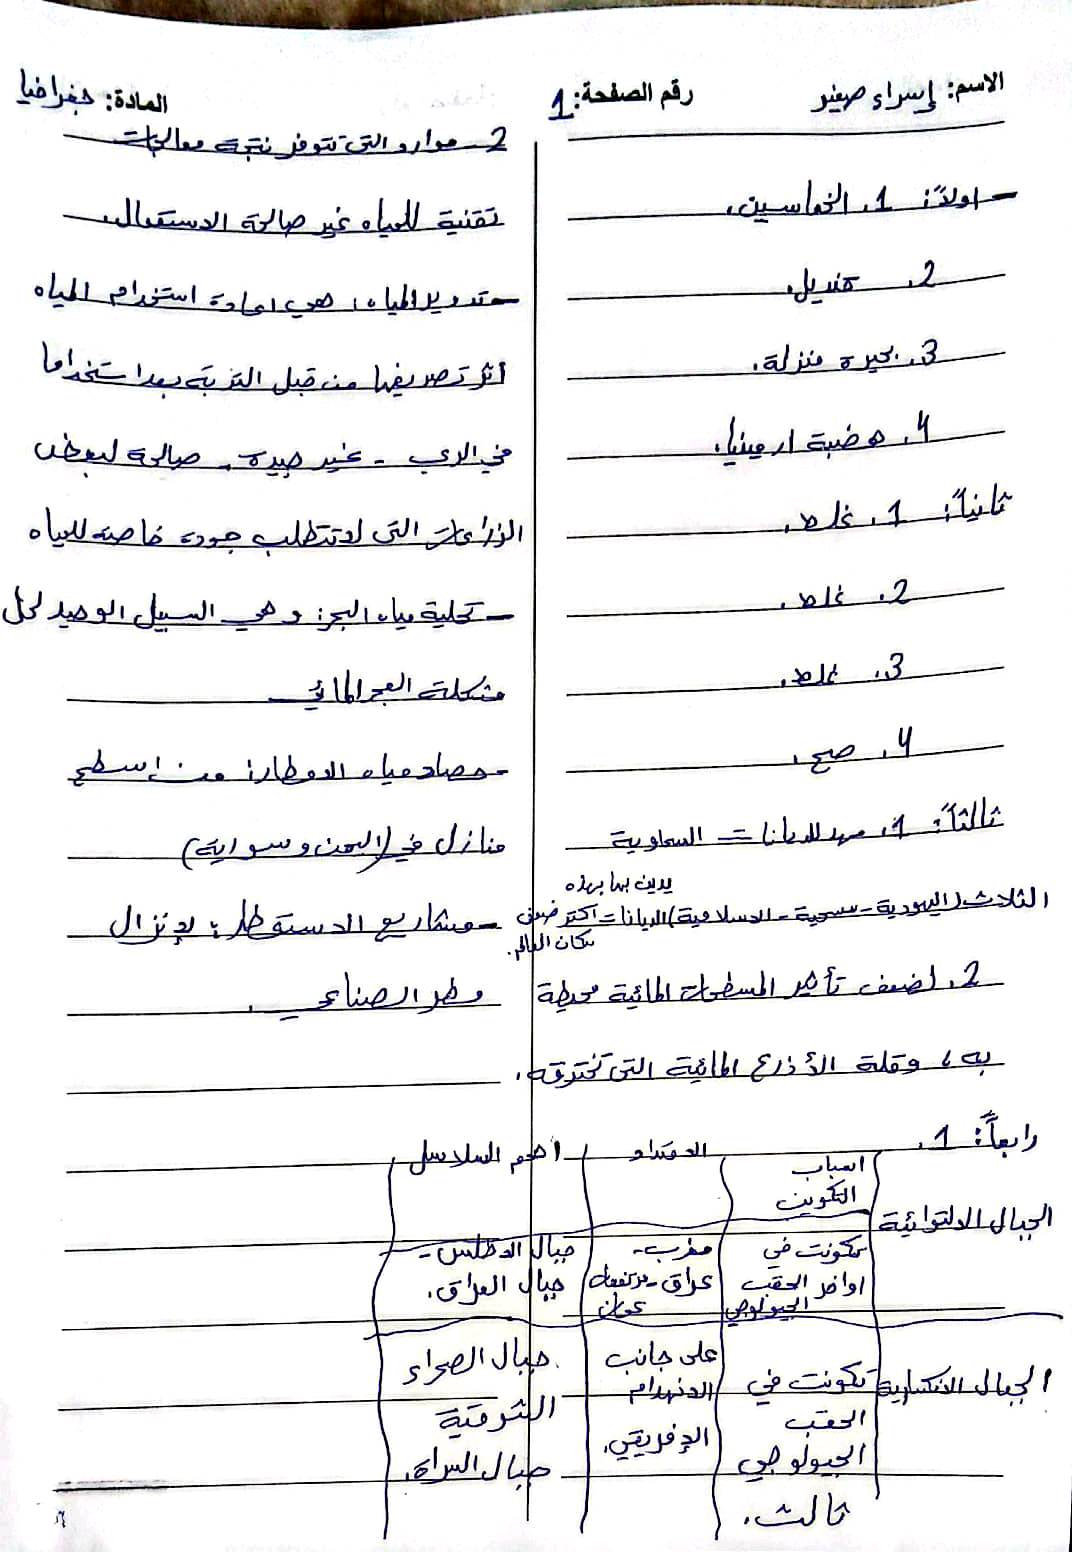 الاسم: إسراء صغير
رقم الصفحة: 1
المادة: جغرافيا
- اولاً: 1. الخماسين.
2. منديل.
3. بحيرة منزلة.
4. هضبة ارمينيا.
ثانياً: 1. غلط.
2. غلط.
3. غلط.
4. صح.
ثالثاً: 1. مهد للديانات السماوية
الثلاث (اليهودية - مسحية - الاسلامية) الديانات اكثر من
يدين بها بهذه
سكان العالم.
2. لضعف تأثير المسطحات المائية محيطة
به، وقلة الأذرع المائية التي تخترقه.
2- موارد التي تتوفر نتيجة معالجات
تقنية للمياه غير صالحة الاستعمال
- تدوير المياه: هي اعادة استخدام المياه
اثر تصريفها من قبل التربة بعد استخداما
في الري - غير جيدة - صالحة لبعض
الزراعات التي لا تتطلب جودة خاصة للمياه
- تحلية مياه البحر: وهي السبيل الوحيد لحل
مشكلة العجز المائي
- حصاد مياه الامطار: من اسطح
منازل في (اليمن وسوراية)
- مشاريع الاستمطار: لإنزال
مطر الصناعي.
رابعاً: 1.
اسباب
التكوين
الامتداد
اهم السلاسل
الجبال الالتوائية
تكونت في
اواخر الحقب
الجيولوجي
مغرب -
عراق - مرتفعات
عمان
جبال الاطلس -
جبال العراق.
الجبال الانكسارية
تكونت في
الحقب
الجيولوجي
ثالث.
على جانب
الانهدام
الإفريقي.
جبال الصحراء
الشرقية
جبال السراة.